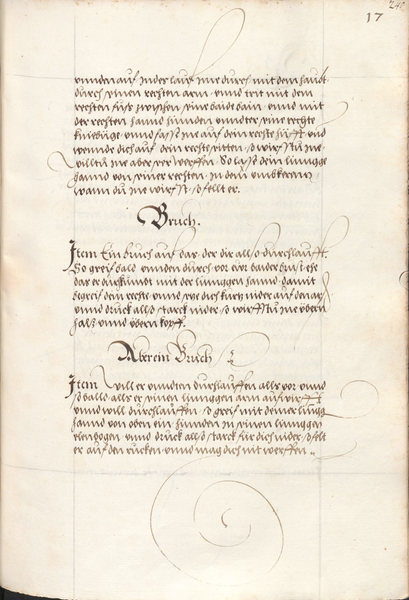 17
unnden auf. In des lauf Ime durch mit dem haubt
durch seinen rechten arm. unnd trit mit dem
rechten fuss zwischen seine baide bain. unnd mit
der rechten hannd hinnden unnder seine rechte
kniebüge. unnd fass Ine auf dein rechte hüfft. und
wennde dich auf dein rechte seitten. so wirfstu Ine.
willtu Ine aber verwerffen. So lass dein lingge
hannd von seiner rechten. In dem umbkern
wann du Ine wirfst. so fellt er.
Bruch.
Item Ein bruch auf das. der dir also durchlaufft.
So greif bald unnden durch vor
dar er dich mit der linggen hannd. damit
begreif dein rechte. unnd
unnd druck also starck nider. so wirffstu Ine übern
hals unnd übern kopff.
Aber ein Bruch
Item will er unnden durchlauffen alls vor. unnd
so balld alls er seinen linggen arm auf wirfft
unnd will durchlauffen. so greif mit deiner lingg
hannd von oben ein hinnden zu seinen linggen
elenbogen. unnd druck also starck für dich nider. so fellt
er auf den rucken. unnd mag dich nit werffen.